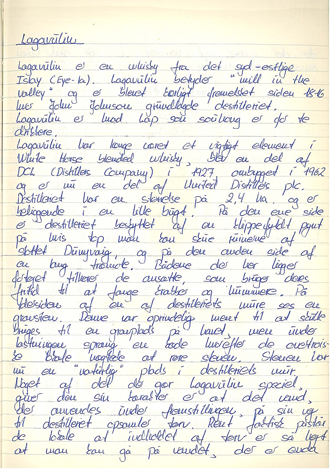 Lagavulin
Lagavulin er en whisky fra det syd-østlige
Islay (Eye-la). Lagavulin betyder "mill in the
valley" og er blevet lovligt fremstillet siden 1816
hvor John Johnson grundlagde destilleriet.
Lagavulin er hvad Løp som solkong er for te
drikkere.
Lagavulin har længe været et vigtigt element i
White Horse blended whisky, blev en del af
DCL (Distillers Company) i 1927, ombygget i 1962
og er nu en del af United Distillers plc.
Destilleriet har en størrelse på 2,4 ha. og er
beliggende i en lille bugt. På den ene side
er destilleriet beskyttet af en klippefyldt pynt
på hvis top man kan skue ruinerne af
slottet Dunyvaig, og på den anden side af
en lang træmole. Bådene der her ligger
fortøjet tilhører de ansatte som bruger deres
fritid til at fange krabber og hummere. På
ydersiden af en af destilleriets mure ses en
gravsten. Denne var oprindelig ment til at skulle
bruges til en gravplads på land, men under
losningen sprang en kæde hvorefter de
lokale nægtede at røre stenen. Stenen har
nu en "naturlig" plads i destilleriets mur.
Noget af det der gør Lagavulin speciel,
giver den sin karakter er at det vand,
der anvendes under fremstillingen, på sin vej
til destilleriet opsamler tørv. Rent faktisk påstår
de lokale at indholdet af tørv er så højt
at man kan gå på vandet, der er endda